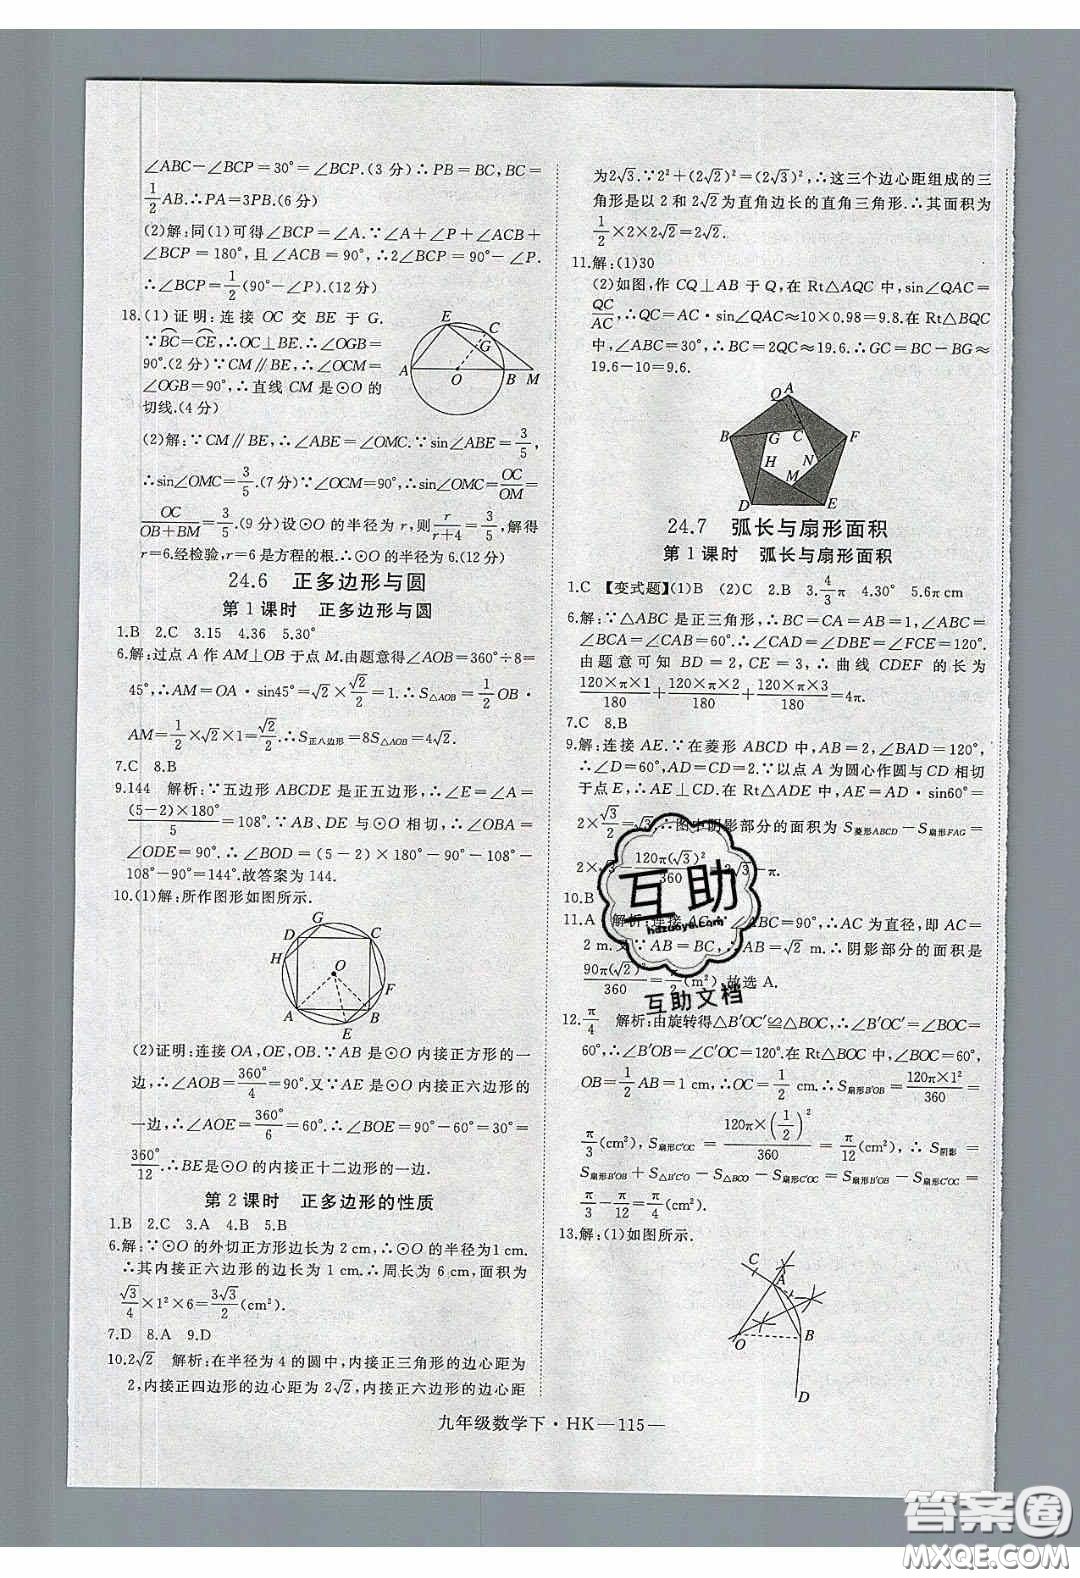 ∠ABC－∠BCP＝30°＝∠BCP.(3 分)∴PB＝BC,BC＝
1/2 AB.∴PA＝3PB.(6 分)
(2)解:同(1)可得∠BCP＝∠A.∵∠A＋∠P＋∠ACB＋
∠BCP＝180°,且∠ACB＝90°,∴2∠BCP＝90°－∠P.
∴∠BCP＝1/2(90°－∠P).(12 分)
18.(1)证明:连接 OC 交 BE 于 G.
∵BC＝CE,∴OC⊥BE.∴∠OGB＝
90°.(2 分)∵CM∥BE,∴∠OCM＝
∠OGB＝90°,∴直线 CM 是⊙O 的
切线.(4 分)
E C G A O B M
(2)解:∵CM∥BE,∴∠ABE＝∠OMC.∵sin∠ABE＝3/5,
∴sin∠OMC＝3/5.(7 分)∵∠OCM＝90°,∴sin∠OMC＝OC/OM＝
OC/(OB＋BM)＝3/5.(9 分)设⊙O 的半径为 r,则 r/(r＋4)＝3/5,解得
r＝6.经检验,r 是方程的根.∴⊙O 的半径为 6.(12 分)
24.6 正多边形与圆
第 1 课时 正多边形与圆
1.B 2.C 3.15 4.36 5.30°
6.解:过点 A 作 AM⊥OB 于点 M.由题意得∠AOB＝360°÷8＝
45°,∴AM＝OA·sin45°＝√2×√2/2＝1.∴S△AOB＝1/2 OB·
AM＝1/2×√2×1＝√2/2.∴S正八边形＝8S△AOB＝4√2.
7.C 8.B
9.144 解析:∵五边形 ABCDE 是正五边形,∴∠E＝∠A＝
(5－2)×180°/5＝108°.∵AB、DE 与⊙O 相切,∴∠OBA＝
∠ODE＝90°.∴∠BOD＝(5－2)×180°－90°－90°－
108°－108°＝144°.故答案为 144.
10.(1)解:所作图形如图所示.
G D C H O F A B E
(2)证明:连接 OA,OE,OB.∵AB 是⊙O 内接正方形的一
边,∴∠AOB＝360°/4＝90°.又∵AE 是⊙O 内接正六边形的
一边,∴∠AOE＝360°/6＝60°.∴∠BOE＝90°－60°＝30°＝
360°/12.∴BE是⊙O 的内接正十二边形的一边.
第 2 课时 正多边形的性质
1.B 2.C 3.A 4.B 5.B
6.解:∵⊙O 的外切正方形边长为 2 cm,∴⊙O 的半径为1 cm.
∴其内接正六边形的边长为 1 cm.∴周长为 6 cm,面积为
√3/4×1²×6＝3√3/2(cm²).
7.D 8.A 9.D
10.2√2 解析:在半径为 4 的圆中,内接正三角形的边心距为
2,内接正四边形的边心距为 2√2,内接正六边形的边心距
为2√3.∵2²＋(2√2)²＝(2√3)²,∴这三个边心距组成的三
角形是以 2 和 2√2为直角边长的直角三角形.∴其面积为
1/2×2×2√2＝2√2.
11.解:(1)30
(2)如图,作 CQ⊥AB 于 Q,在 Rt△AQC 中,sin∠QAC＝
QC/AC,∴QC＝AC·sin∠QAC≈10×0.98＝9.8.在 Rt△BQC
中,∵∠ABC＝30°,∴BC＝2QC≈19.6.∴GC＝BC－BG≈
19.6－10＝9.6.
Q A B G C F H N M D E
24.7 弧长与扇形面积
第 1 课时 弧长与扇形面积
1.C 【变式题】(1)B (2)C 2.B 3.4/3π 4.30° 5.6π cm
6.解:∵△ABC 是正三角形,∴BC＝CA＝AB＝1,∠ABC＝
∠BCA＝∠CAB＝60°.∴∠CAD＝∠DBE＝∠FCE＝120°.
由题意可知 BD＝2,CE＝3,∴曲线 CDEF 的长为
120×π×1/180＋120×π×2/180＋120×π×3/180＝4π.
7.C 8.B
9.解:连接 AE.∵在菱形 ABCD 中,AB＝2,∠BAD＝120°,
∴∠D＝60°,AD＝CD＝2.∵以点 A 为圆心作圆与 CD 相切
于点 E,∴AE⊥CD.在 Rt△ADE 中,AE＝AD·sin60°＝
2×√3/2＝√3.∴图中阴影部分的面积为 S菱形ABCD－S扇形FAG＝
2×√3－120π(√3)²/360＝2√3－π.
10.B
11.A 解析:连接 AC.∵∠ABC＝90°,∴AC 为直径,即 AC＝
2 m.又∵AB＝BC,∴AB＝√2 m.∴阴影部分的面积是
90π(√2)²/360＝π/2(m²).故选 A.
12.π/4 解析:由旋转得△B′OC′≌△BOC,∴∠B′OC′＝∠BOC＝
60°,∴∠B′OB＝∠C′OC＝120°.在 Rt△BOC 中,∠BOC＝60°,
OB＝1/2 AB＝1 cm,∴OC＝1/2 cm.∴S扇形B′OB＝120π×1²/360＝
π/3(cm²),S扇形C′OC＝120π×(1/2)²/360＝π/12(cm²),∴S阴影＝
S扇形B′OB＋S△B′C′O－S△BCO－S扇形C′OC＝S扇形B′OB－S扇形C′OC＝
π/3－π/12＝π/4(cm²).
13.解:(1)如图所示.
C A O B D
九年级数学下·HK—115—
互助
hdzuoye.com
互助文档
答案圈
MXQE.COM